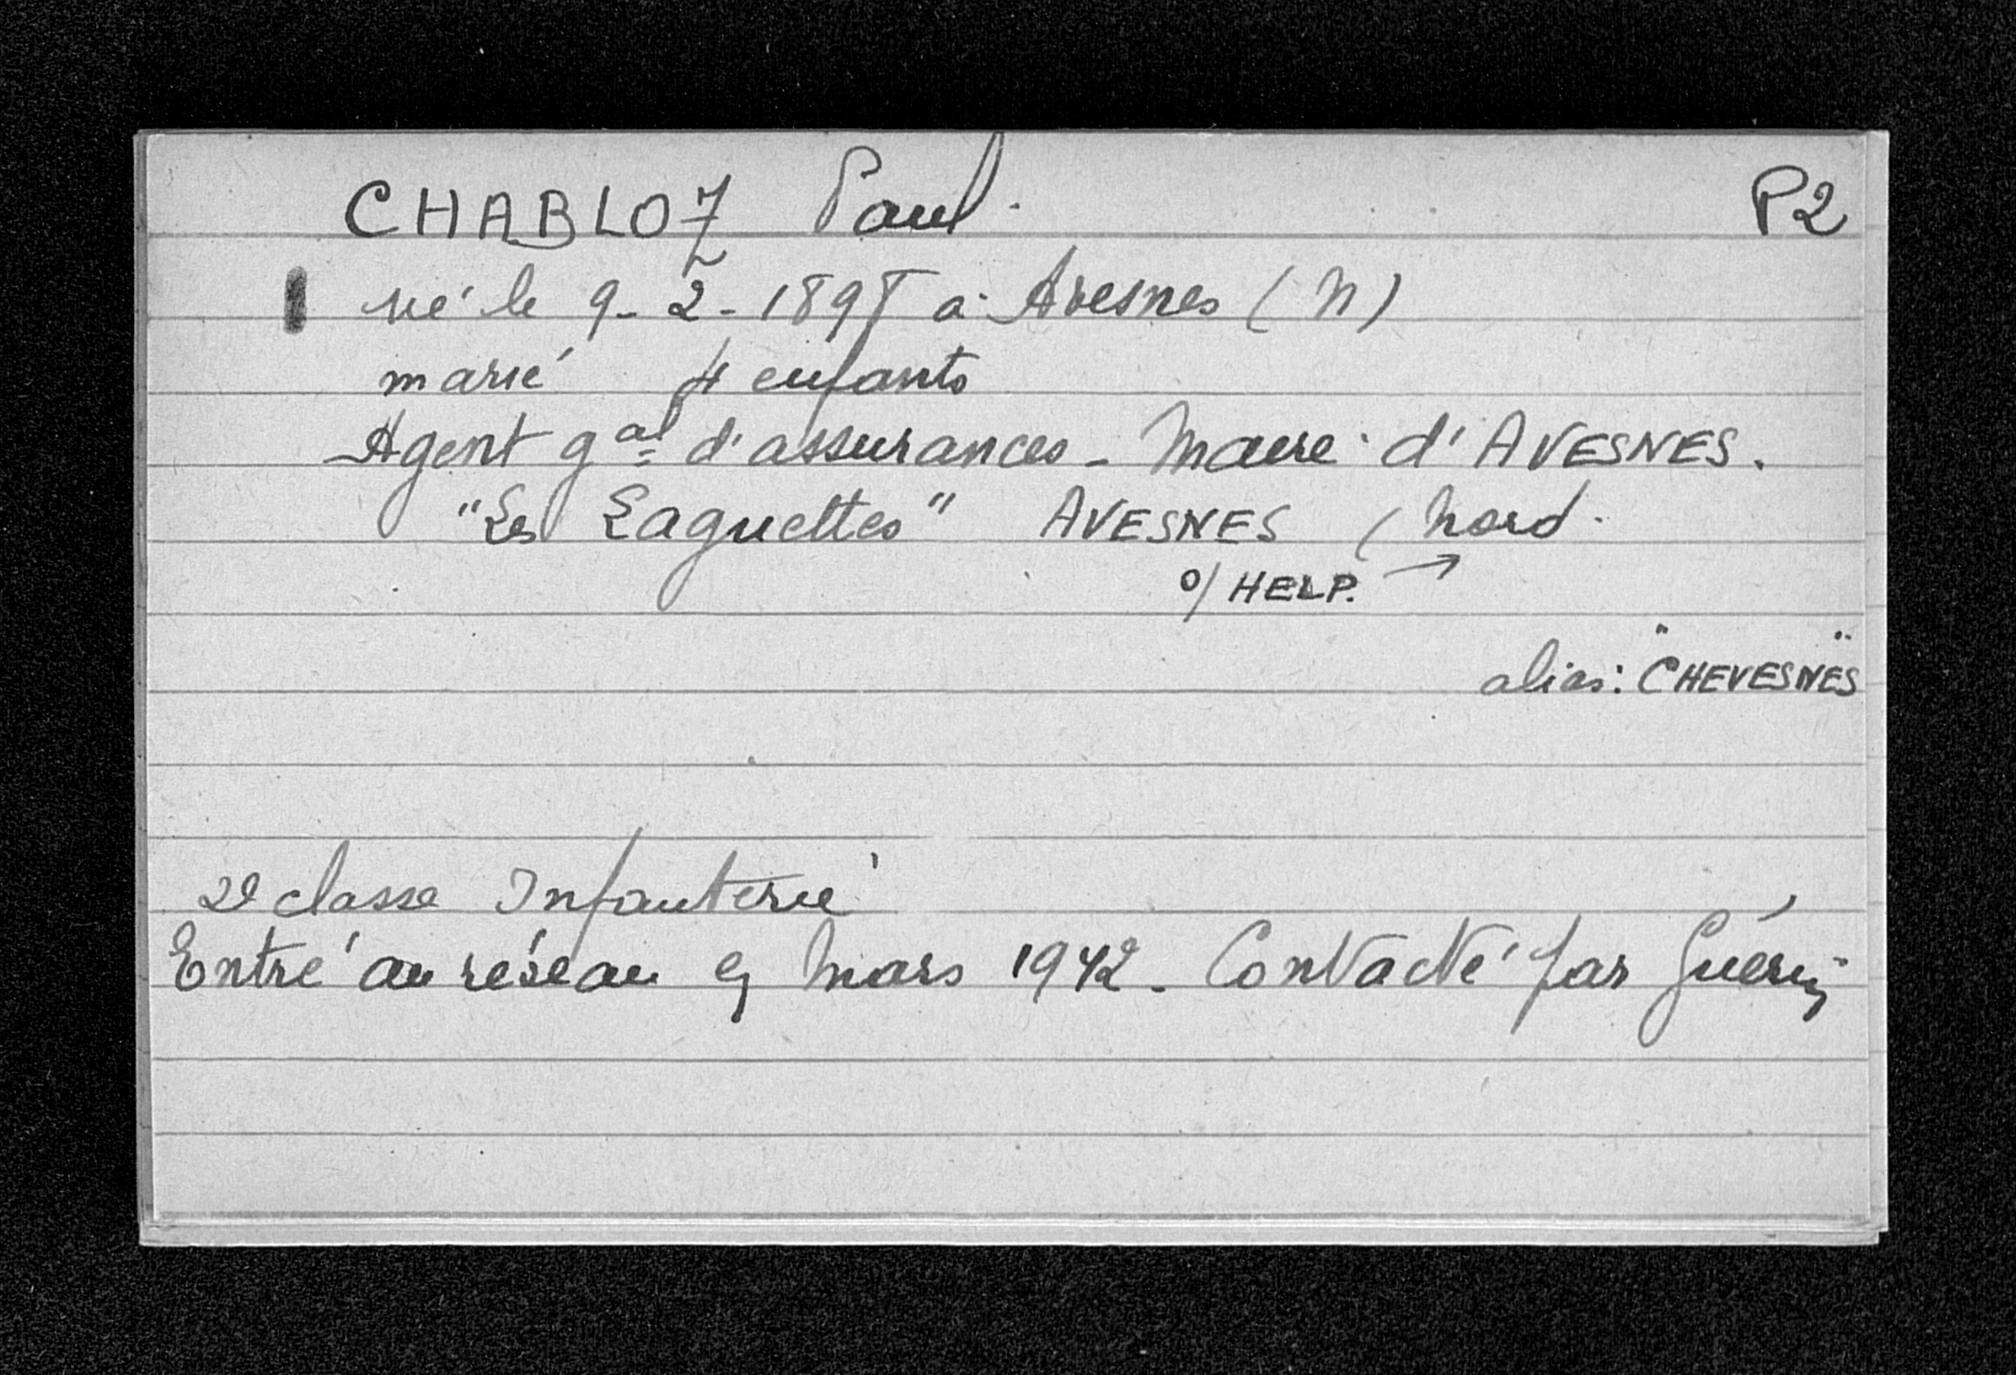 CHABLOZ Paul. P2
né le 9-2-1898 à Avesnes (N)
marié 4 enfants
Agent gal d'assurances - Maire d'AVESNES.
"Les Laguettes" AVESNES (Nord.
o/ HELP. →
alias: "CHEVESNES"
2e classe Infanterie
Entré au réseau en Mars 1942. Contacté par Guérin